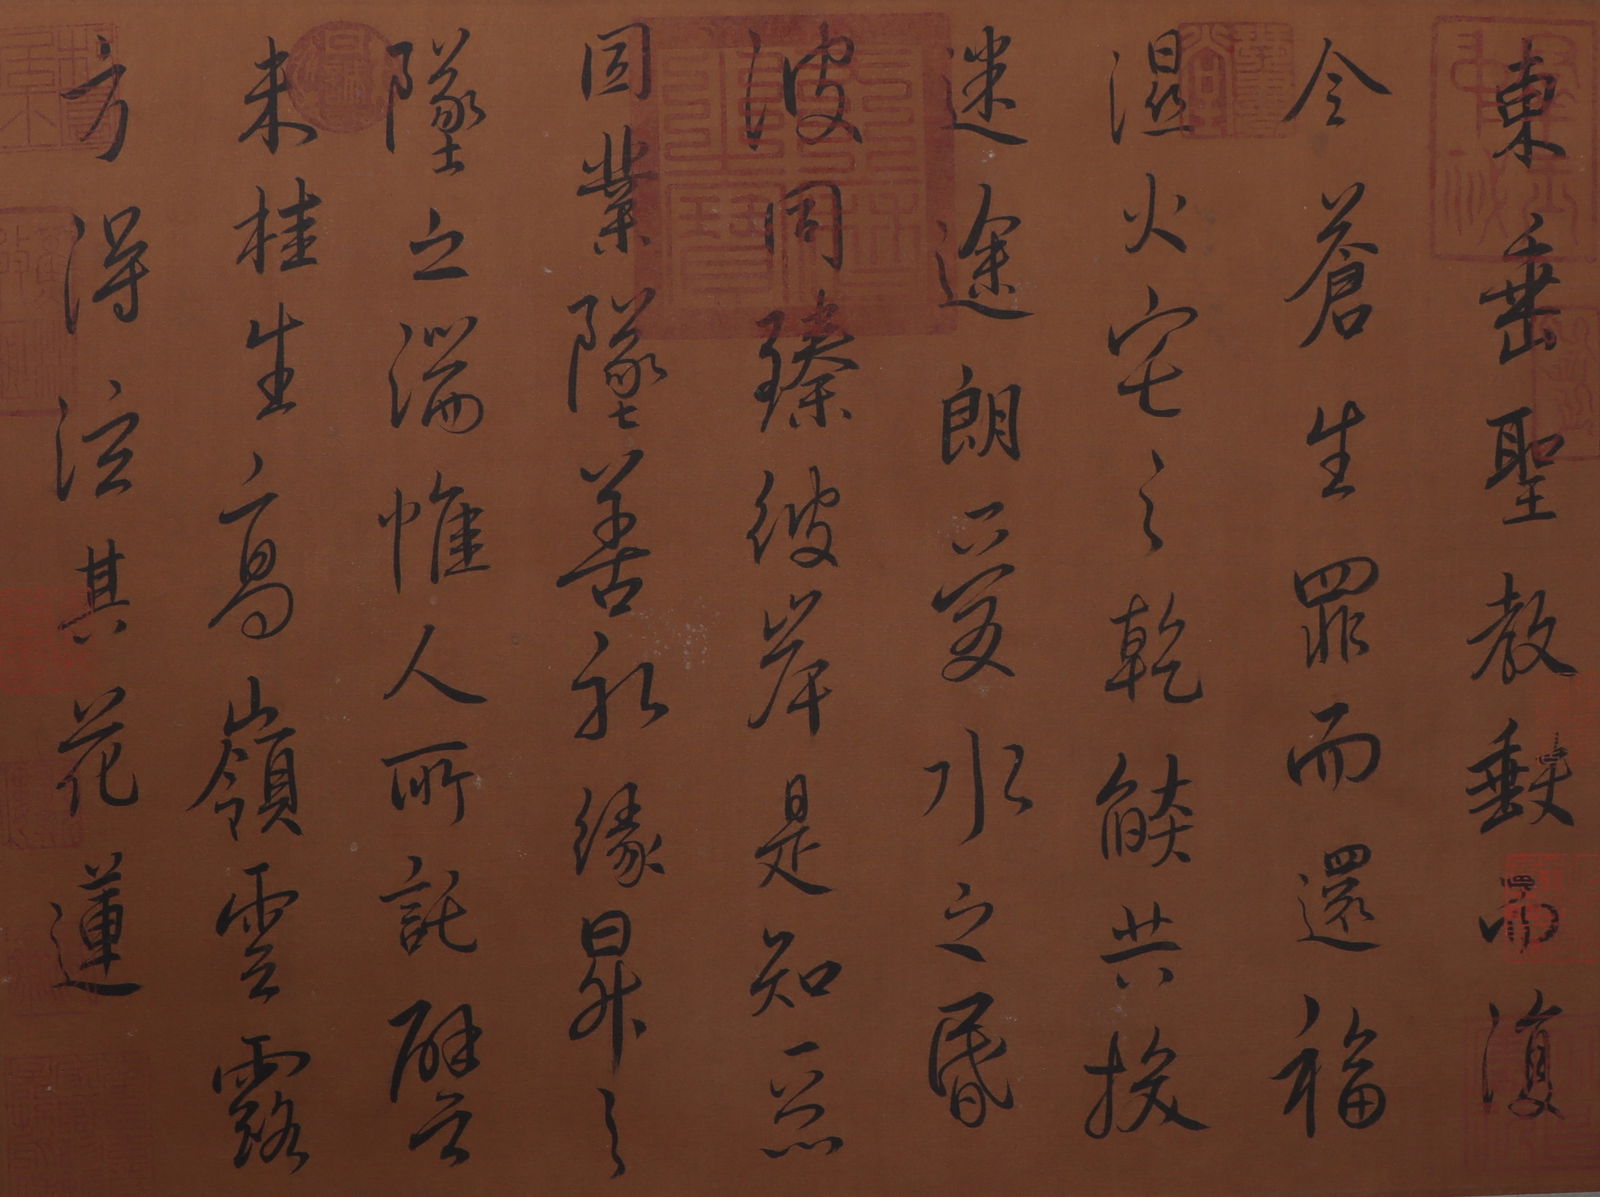 東垂聖教缺而復
全蒼生罪而還福
濕火宅之乾焰共拔
迷途朗愛水之昏
波同臻彼岸是知惡
因業墜善以緣昇々
墜之端惟人所託譬
夫桂生高嶺雲露
方得泫其花蓮